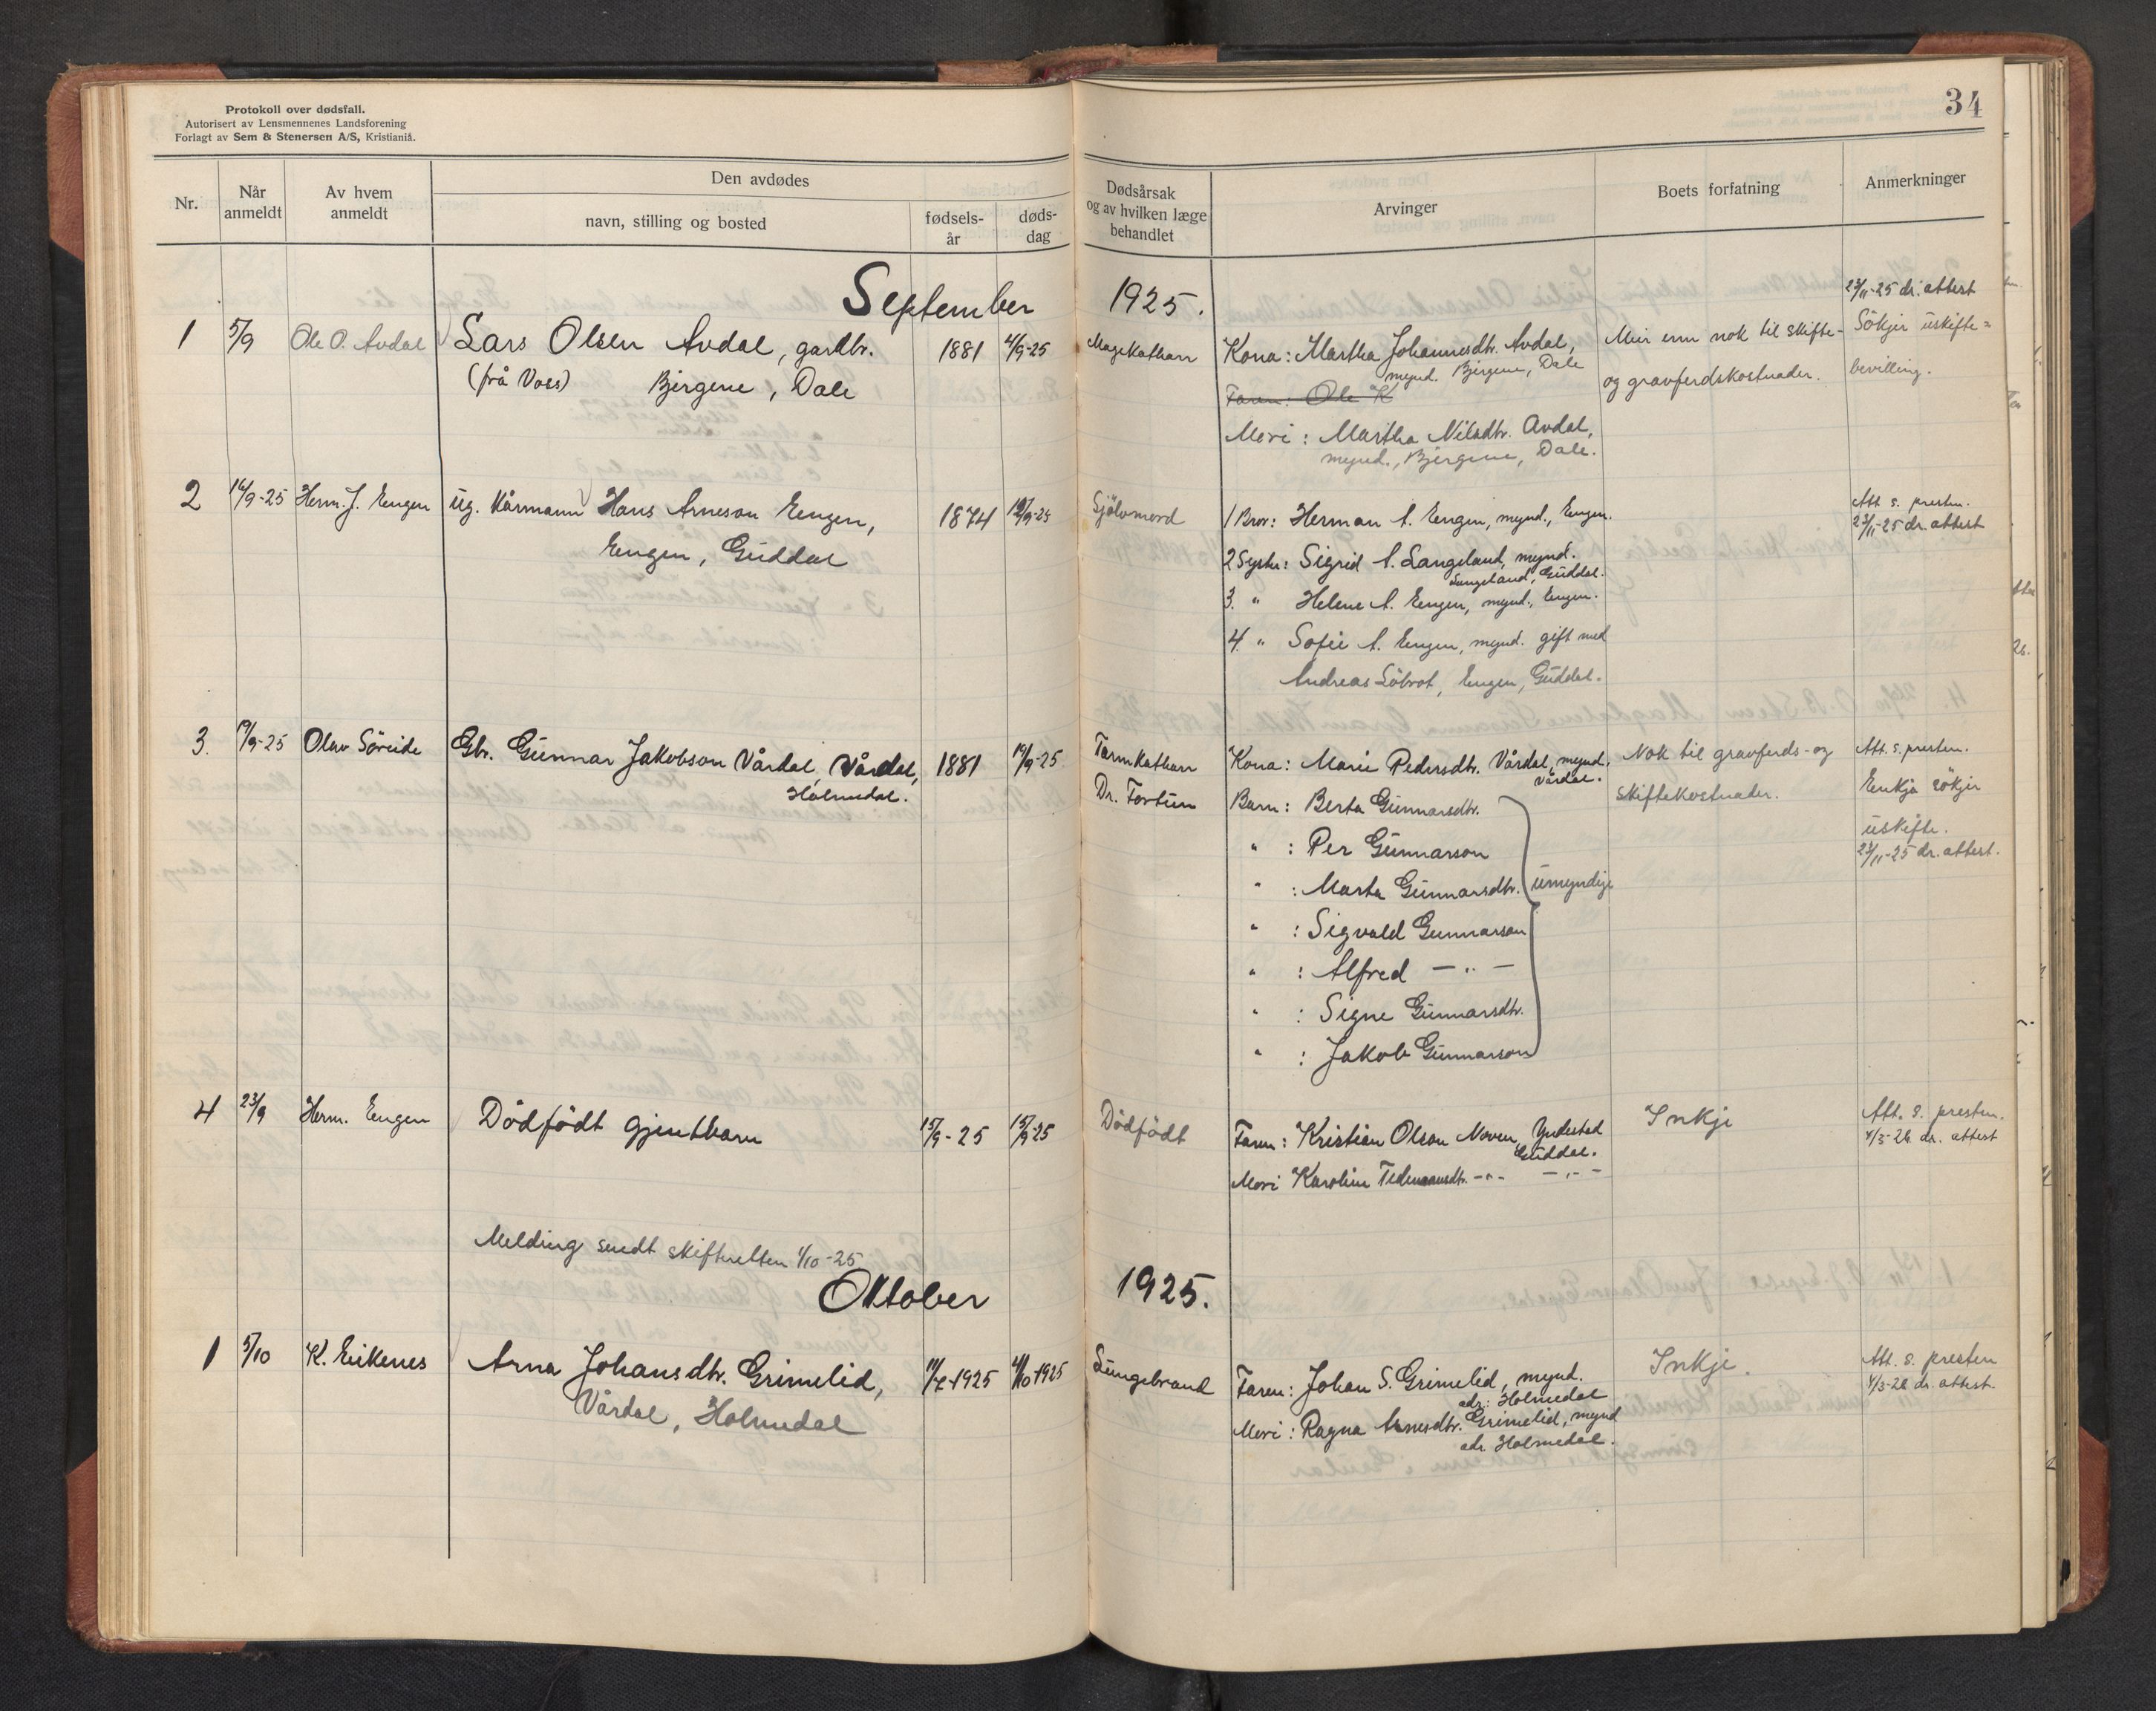 Protokoll over dødsfall.
Autorisert av Lensmennenes Landsforening
Forlagt av Sem & Stenersen A/S, Kristianiå.
34
Nr.
Når anmeldt
Av hvem anmeldt
Den avdødes
navn, stilling og bosted
fødsels-år
døds-dag
Dødsårsak og av hvilken læge behandlet
Arvinger
Boets forfatning
Anmerkninger
September 1925.
1 5/9 Ole O. Avdal Lars Olsen Avdal, gardbr. 1881 4/9-25 Magekatharr
(frå Voss) Bjergene, Dale
Kona: Martha Johannesdtr. Avdal,
mynd. Bjergene, Dale
Faren: Ole K
Mori: Martha Nilsdtr. Avdal,
mynd., Bjergene, Dale.
Meir enn nok til skifte-
og gravferdskostnader.
23/11-25 dr. attest
Sökjer uskifte=
bevilling.
2 16/9-25 Herm. J. Engen ug. Kårmann Hans Arneson Engen, 1874 12/9-25 Sjölvmord
Engen, Guddal
1 Bror: Herman A. Engen, mynd., Engen.
2 Syster: Sigrid A. Langeland, mynd.
Langeland, Guddal.
3. " Helene A. Engen, mynd., Engen.
4. " Sofie A. Engen, mynd. gift med
Andreas Lötvot, Engen, Guddal.
Att s. presten.
23/11-25 dr. attest
3. 19/9-25 Olav Söreide Gbr. Gunnar Jakobson Vårdal, Vårdal, 1881 14/9-25 Tarmkatharr
Holmedal.
Dr. Fortun
Kona: Marie Pedersdtr. Vårdal, mynd.
Vårdal.
Barn: Berta Gunnarsdtr.
" : Per Gunnarson
" : Marta Gunnarsdtr. umyndige
" : Sigvald Gunnarson
" : Alfred — " —
" : Signe Gunnarsdtr.
" : Jakob Gunnarson
Nok til gravferds- og
skiftekostnader.
Att. s. presten.
Enkja sökjer
uskifte.
23/11-25 dr. attest.
4 23/9 Herm. Engen Dödfödt gjentbarn 15/9-25 15/9-25 Dödfödt
Faren: Kristian Olson Noven, Yndestad
Guddal.
Mori Karoline — " — — " —
Inkje
Att. s. presten.
4/3-26 dr. attest
Melding sendt skifteretten 1/10-25
Oktober 1925.
1 5/10 K. Eikenes Arna Johansdtr. Grimelid, 1925 4/10 1925 Lungebrand
Vårdal, Holmedal
Faren: Johan S. Grimelid, mynd.
adr: Holmedal
Mori: Ragna Arnesdtr. Grimelid, mynd
adr. Holmedal.
Inkje.
Att. s. presten
4/3-26 dr. attest.